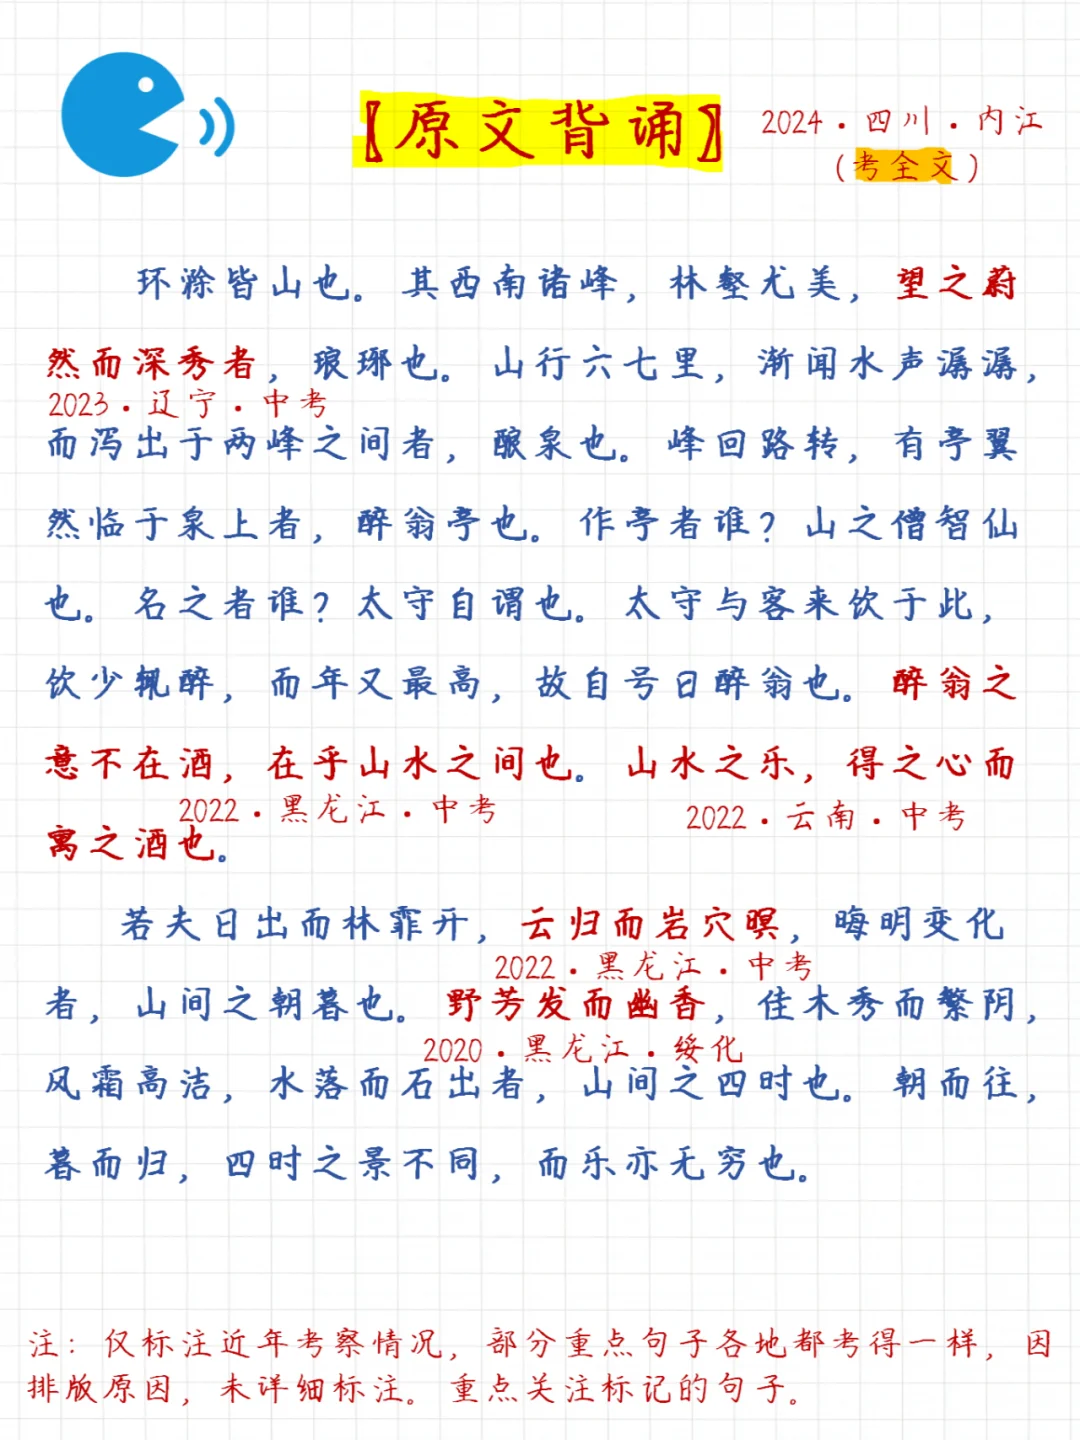 【原文背诵】
2024·四川·内江
(考全文)
环滁皆山也。其西南诸峰，林壑尤美，望之蔚
然而深秀者，琅琊也。山行六七里，渐闻水声潺潺，
2023·辽宁·中考
而泻出于两峰之间者，酿泉也。峰回路转，有亭翼
然临于泉上者，醉翁亭也。作亭者谁？山之僧智仙
也。名之者谁？太守自谓也。太守与客来饮于此，
饮少辄醉，而年又最高，故自号曰醉翁也。醉翁之
意不在酒，在乎山水之间也。山水之乐，得之心而
2022·黑龙江·中考
2022·云南·中考
寓之酒也。
若夫日出而林霏开，云归而岩穴暝，晦明变化
2022·黑龙江·中考
者，山间之朝暮也。野芳发而幽香，佳木秀而繁阴，
2020·黑龙江·绥化
风霜高洁，水落而石出者，山间之四时也。朝而往，
暮而归，四时之景不同，而乐亦无穷也。
注：仅标注近年考察情况，部分重点句子各地都考得一样，因
排版原因，未详细标注。重点关注标记的句子。